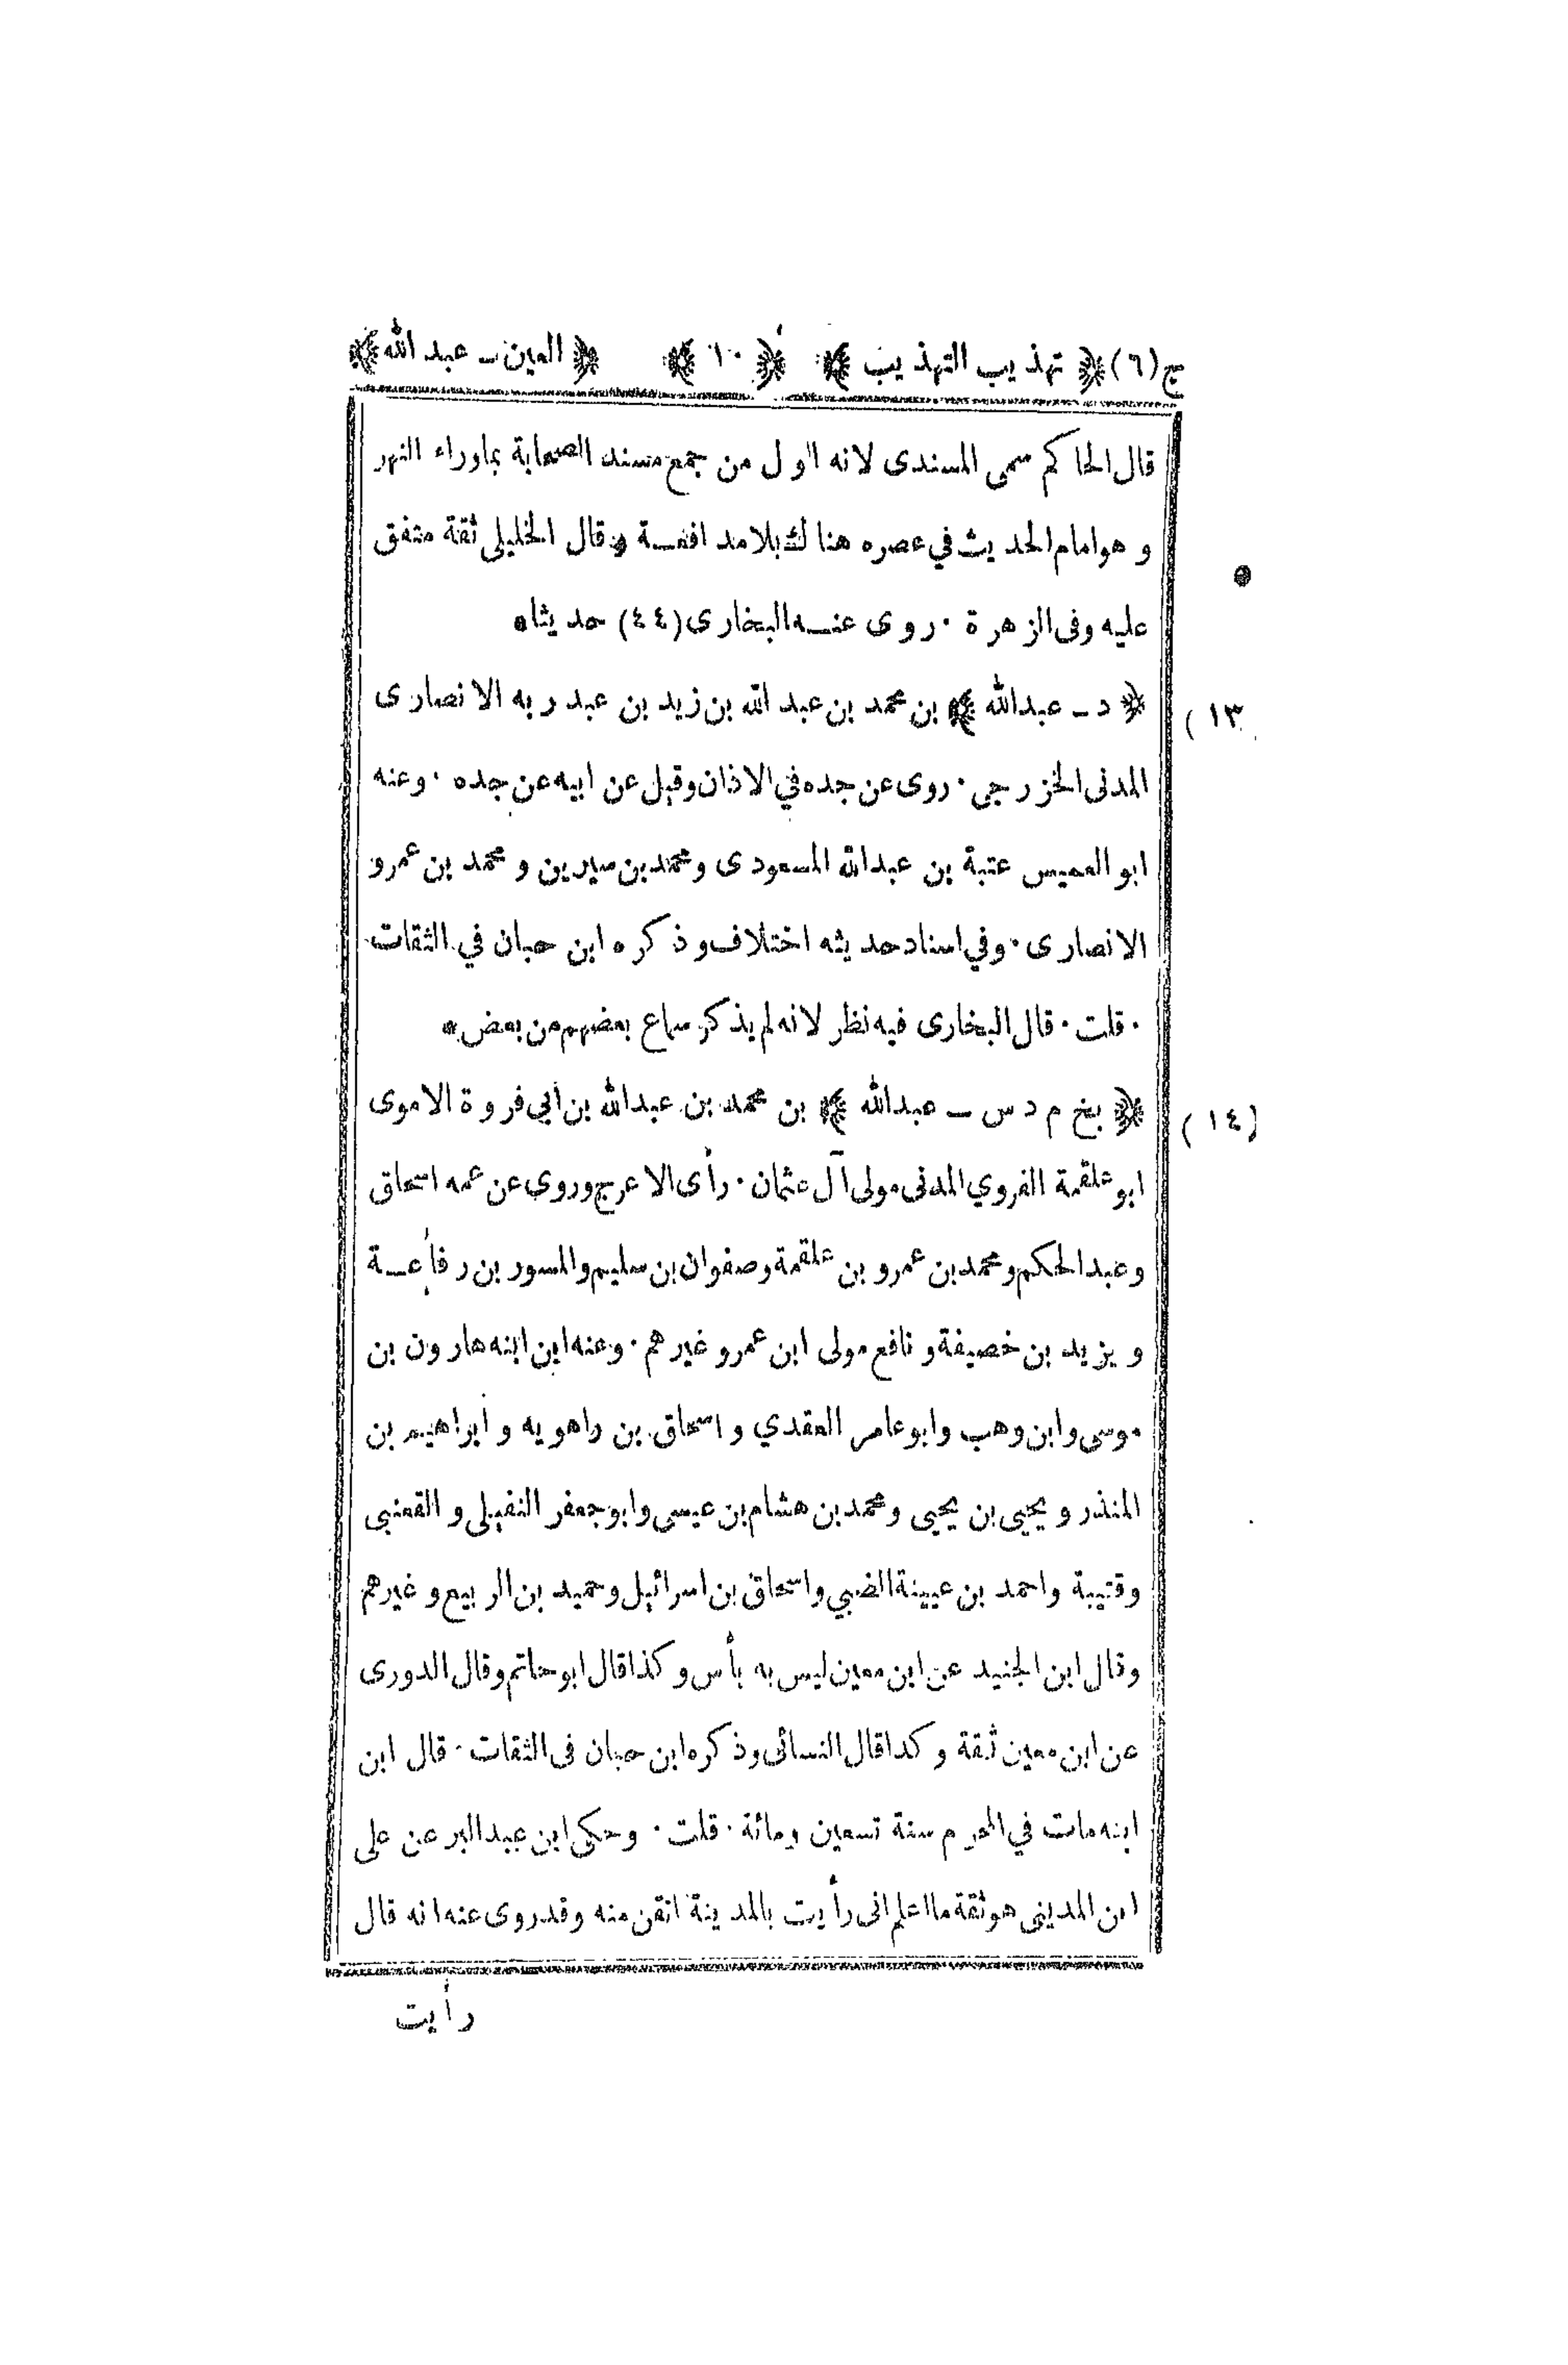 ج (٦) ﴿ تهذيب التهذيب ﴾ ﴿ ١٠ ﴾ ﴿ العين ـ عبد الله ﴾
قال الحاكم سمى المسندى لانه اول من جمع مسند الصحابة بماوراء النهر
وهو امام الحديث في عصره هناك بلا مدافعة وقال الخليلى ثقة متفق
عليه وفى الزهرة . روى عنه البخارى (٤٤) حديثا ه
(١٣ ﴿ د ـ عبدالله ﴾ بن محمد بن عبد الله بن زيد بن عبد ربه الانصارى
المدنى الخزرجى . روى عن جده في الاذان وقيل عن ابيه عن جده . وعنه
ابو العميس عتبة بن عبدالله المسعودى ومحمد بن سيرين ومحمد بن عمرو
الانصارى . وفي اسناد حديثه اختلاف وذكره ابن حبان في الثقات
. قلت . قال البخارى فيه نظر لانه لم يذكر سماع بعضهم من بعض ه
(١٤) ﴿ بخ م د س ـ عبدالله ﴾ بن محمد بن عبدالله بن أبي فروة الاموى
ابو علقمة الفروي المدنى مولى آل عثمان . رأى الاعرج وروى عن عمه اسحاق
وعبد الحكم ومحمد بن عمرو بن علقمة وصفوان بن سليم والمسور بن رفاعة
ويزيد بن خصيفة ونافع مولى ابن عمرو غيرهم . وعنه ابن ابنه هارون بن
موسى وابن وهب وابو عامر العقدي واسحاق بن راهويه وابراهيم بن
المنذر ويحيى بن يحيى ومحمد بن هشام بن عيسى وابو جعفر النفيلى والقعنبى
وقتيبة واحمد بن عبينة الضبي واسحاق بن اسرائيل وحميد بن الربيع وغيرهم
وقال ابن الجنيد عن ابن معين ليس به بأس وكذا قال ابو حاتم وقال الدورى
عن ابن معين ثقة وكذا قال النسائى وذكره ابن حبان فى الثقات . قال ابن
ابنه مات في المحرم سنة تسعين ومائة . قلت . وحكى ابن عبد البر عن على
ابن المدينى هو ثقة ما اعلم انى رأيت بالمدينة اتقن منه وقد روى عنه انه قال
رأيت